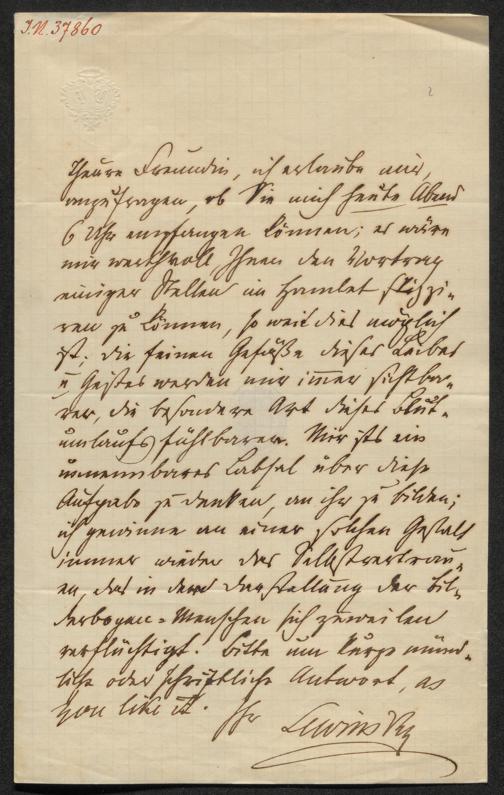 J.N. 37860
2
Theure Freundin, ich erlaube mir,
anzufragen, ob Sie mich heute Abend
6 Uhr empfangen können; es wäre
mir werthvoll Ihnen den Vortrag
einiger Stellen im Hamlet skizzi-
ren zu können, so weit dies möglich
ist; die feinen Gefäße dieses Leibes
u Geistes werden mir immer sichtba-
rer, die besondere Art dieses Blut-
umlaufs fühlbarer. Mir ists ein
unnennbares Labsal über diese
Aufgabe zu denken, an ihr zu bilden;
ich gewinne an einer solchen Gestalt
immer wieder das Selbstvertrau-
en, das in der Darstellung der Bil-
derbogen-Menschen sich zuweilen
verflüchtigt. Bitte um kurze münd-
liche oder schriftliche Antwort, as
you like it. Ihr
Lewinsky